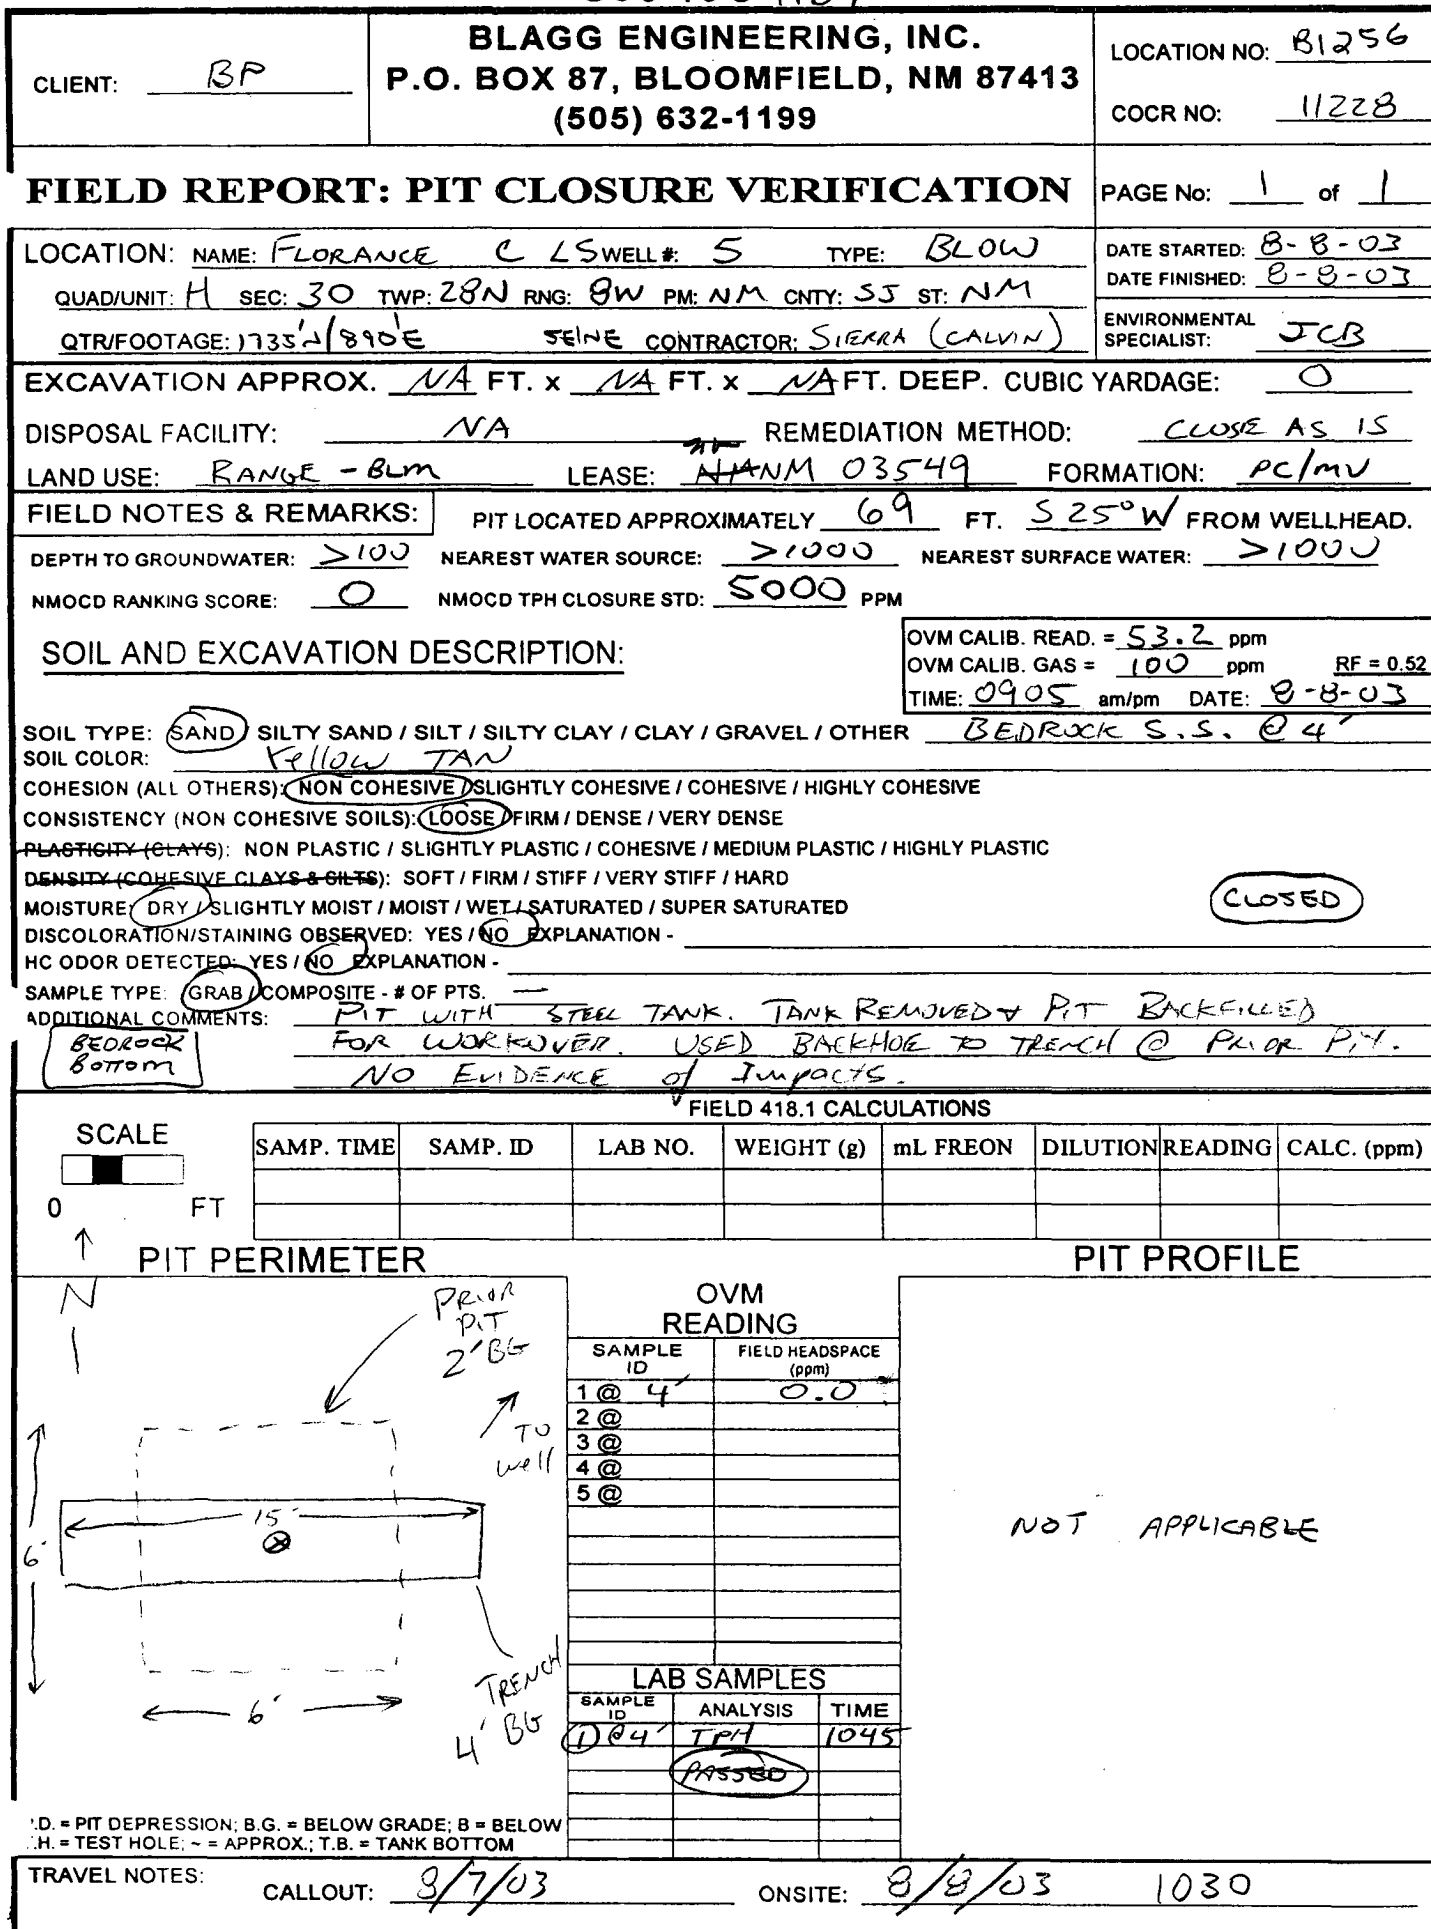 BLAGG ENGINEERING, INC.
P.O. BOX 87, BLOOMFIELD, NM 87413
(505) 632-1199
CLIENT: BP
LOCATION NO: B1256
COCR NO: 11228
FIELD REPORT: PIT CLOSURE VERIFICATION
PAGE No: 1 of 1
LOCATION: NAME: FLORANCE C LS WELL #: 5 TYPE: BLOW
QUAD/UNIT: H SEC: 30 TWP: 28N RNG: 8W PM: NM CNTY: SJ ST: NM
QTR/FOOTAGE: 1735'N/890'E SE/NE CONTRACTOR: SIERRA (CALVIN)
DATE STARTED: 8-8-03
DATE FINISHED: 8-8-03
ENVIRONMENTAL
SPECIALIST: JCB
EXCAVATION APPROX. NA FT. x NA FT. x NA FT. DEEP. CUBIC YARDAGE: 0
DISPOSAL FACILITY: NA REMEDIATION METHOD: CLOSE AS IS
LAND USE: RANGE - BLM LEASE: NM 03549 FORMATION: PC/MV
FIELD NOTES & REMARKS: PIT LOCATED APPROXIMATELY 69 FT. S25°W FROM WELLHEAD.
DEPTH TO GROUNDWATER: >100 NEAREST WATER SOURCE: >1000 NEAREST SURFACE WATER: >1000
NMOCD RANKING SCORE: 0 NMOCD TPH CLOSURE STD: 5000 PPM
SOIL AND EXCAVATION DESCRIPTION:
OVM CALIB. READ. = 53.2 ppm
OVM CALIB. GAS = 100 ppm RF = 0.52
TIME: 0905 am/pm DATE: 8-8-03
SOIL TYPE: SAND / SILTY SAND / SILT / SILTY CLAY / CLAY / GRAVEL / OTHER BEDROCK S.S. @ 4'
SOIL COLOR: Yellow TAN
COHESION (ALL OTHERS): NON COHESIVE / SLIGHTLY COHESIVE / COHESIVE / HIGHLY COHESIVE
CONSISTENCY (NON COHESIVE SOILS): LOOSE / FIRM / DENSE / VERY DENSE
PLASTICITY (CLAYS): NON PLASTIC / SLIGHTLY PLASTIC / COHESIVE / MEDIUM PLASTIC / HIGHLY PLASTIC
DENSITY (COHESIVE CLAYS & SILTS): SOFT / FIRM / STIFF / VERY STIFF / HARD
MOISTURE: DRY / SLIGHTLY MOIST / MOIST / WET / SATURATED / SUPER SATURATED
CLOSED
DISCOLORATION/STAINING OBSERVED: YES / NO EXPLANATION -
HC ODOR DETECTED: YES / NO EXPLANATION -
SAMPLE TYPE: GRAB / COMPOSITE - # OF PTS. —
ADDITIONAL COMMENTS: PIT WITH STEEL TANK. TANK REMOVED & PIT BACKFILLED
FOR WORKOVER. USED BACKHOE TO TRENCH @ PRIOR PIT.
NO EVIDENCE of Impacts.
BEDROCK
Bottom
FIELD 418.1 CALCULATIONS
SCALE
0 FT
SAMP. TIME SAMP. ID LAB NO. WEIGHT (g) mL FREON DILUTION READING CALC. (ppm)
PIT PERIMETER
PIT PROFILE
N
PRIOR
PIT
2' BG
TO
well
15'
6'
6'
TRENCH
4' BG
OVM
READING
SAMPLE
ID
FIELD HEADSPACE
(ppm)
1 @ 4' 0.0
2 @
3 @
4 @
5 @
NOT APPLICABLE
LAB SAMPLES
SAMPLE
ID
ANALYSIS TIME
1 @ 4' TPH 1045
PASSED
.D. = PIT DEPRESSION; B.G. = BELOW GRADE; B = BELOW
.H. = TEST HOLE; ~ = APPROX.; T.B. = TANK BOTTOM
TRAVEL NOTES: CALLOUT: 8/7/03 ONSITE: 8/8/03 1030